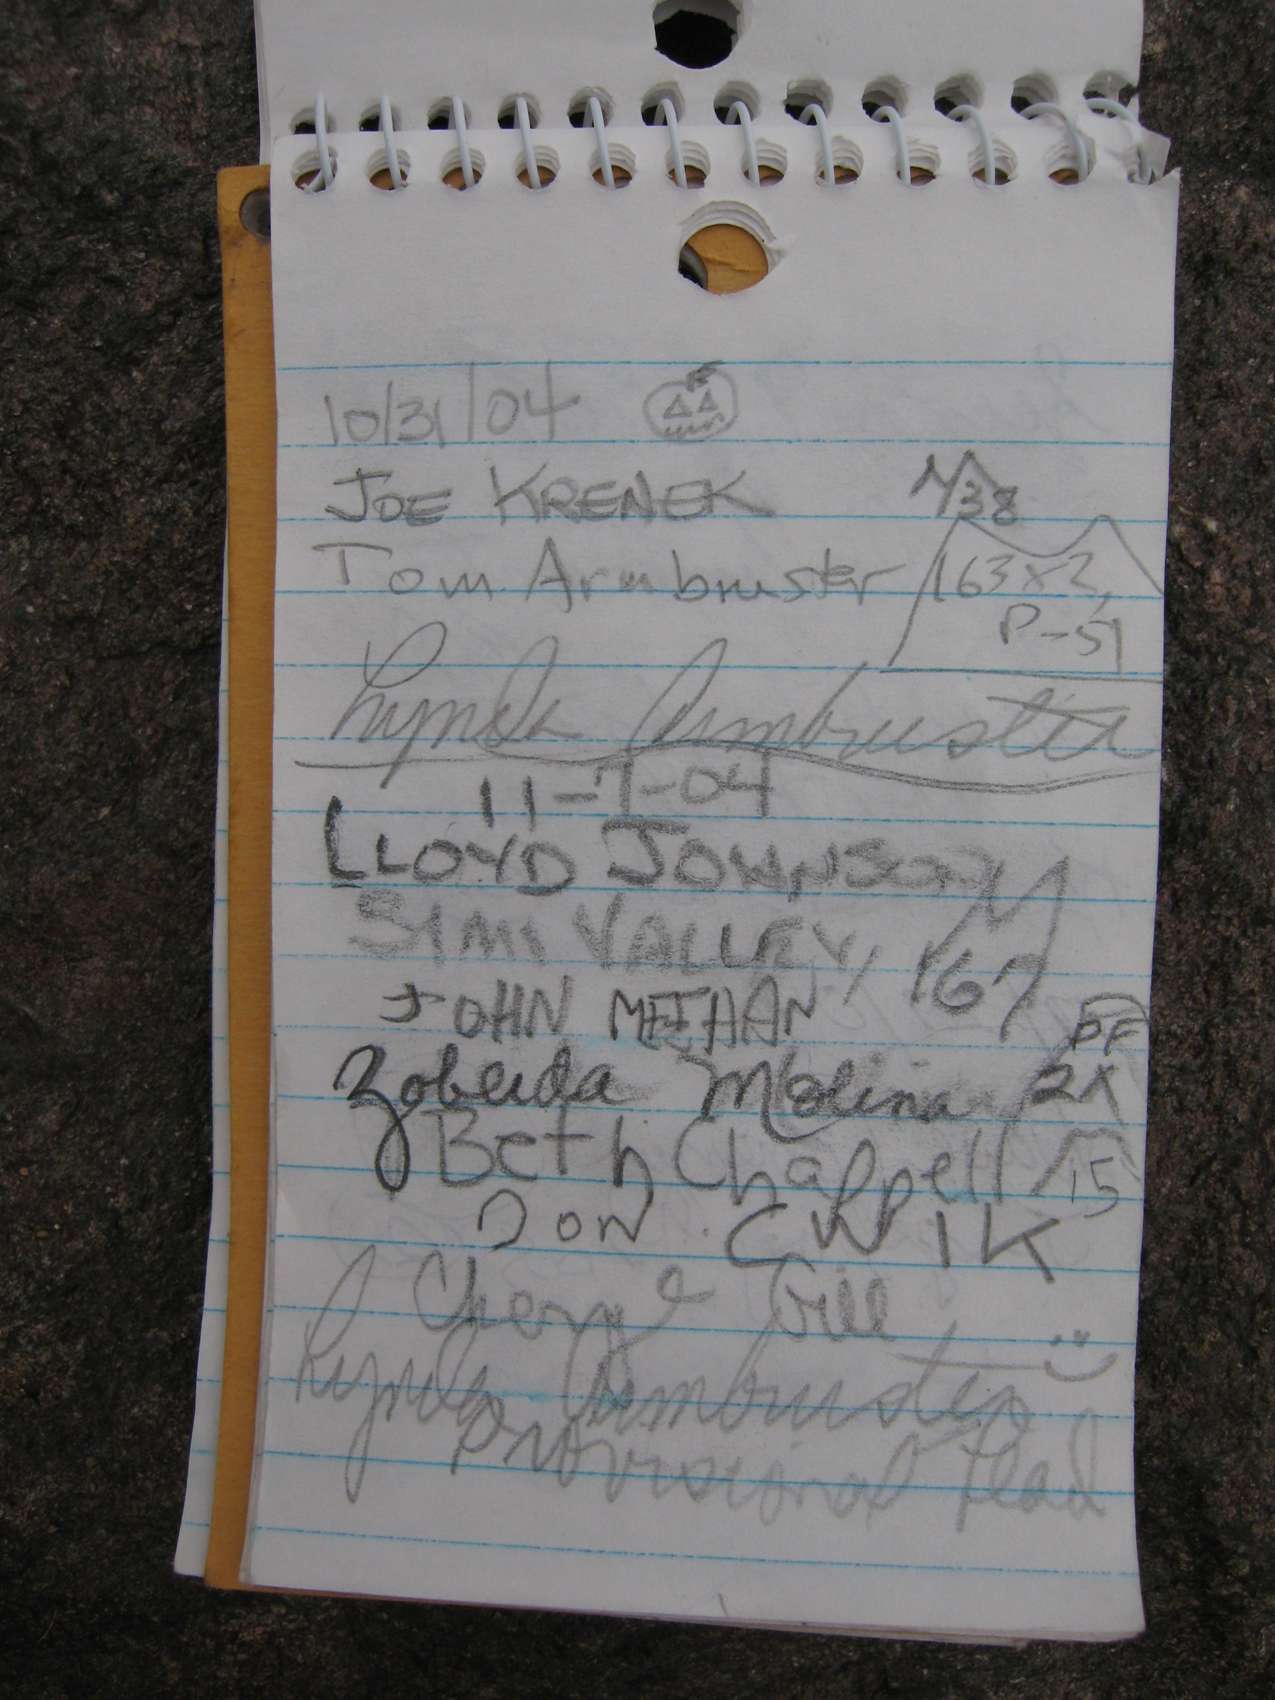 10/31/04
JOE KRENEK 38
Tom Armbruster 163x2,
P-51
Lynda Armbruster
11-7-04
LLOYD JOHNSON
SIMI VALLEY, 167
JOHN MEEHAN
Zobeida Molina 2X
Beth Chappell 15
DON CWIK
Cheryl Gill
Lynda Armbruster
Provisional Lead